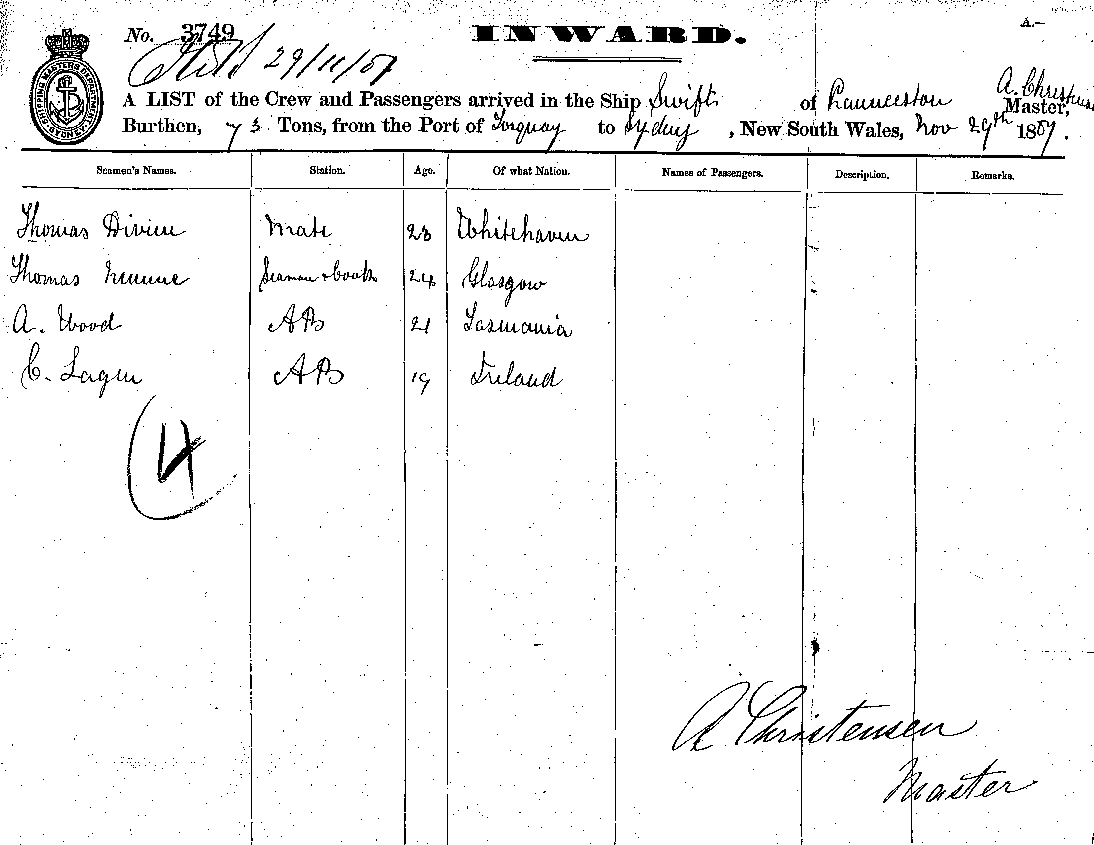 No. 3749
INWARD.
A.—
29/11/87
SHIPPING MASTERS DEPARTMENT SYDNEY
A LIST of the Crew and Passengers arrived in the Ship Swift of Launceston A. Christensen Master,
Burthen, 73 Tons, from the Port of Torquay to Sydney, New South Wales, Nov 29th 1887.
Seamen's Names. Station. Age. Of what Nation. Names of Passengers. Description. Remarks.
Thomas Divine Mate 23 Whitehaven
Thomas Seaman & Cook 24 Glasgow
A. Wood AB 21 Tasmania
C. AB 19 Ireland
4
A Christensen
Master